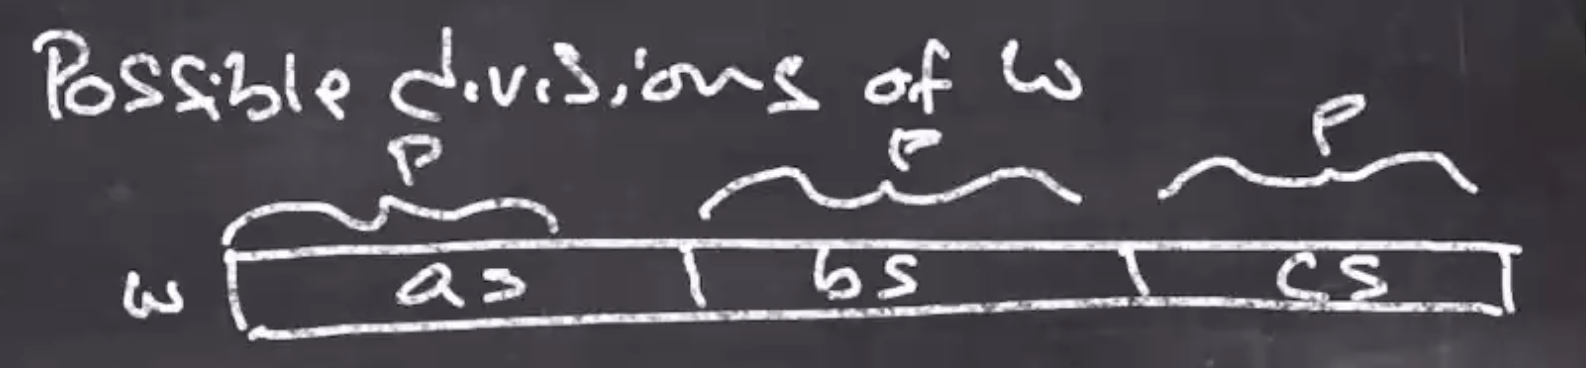 Possible divisions of w
P P P
w as bs cs